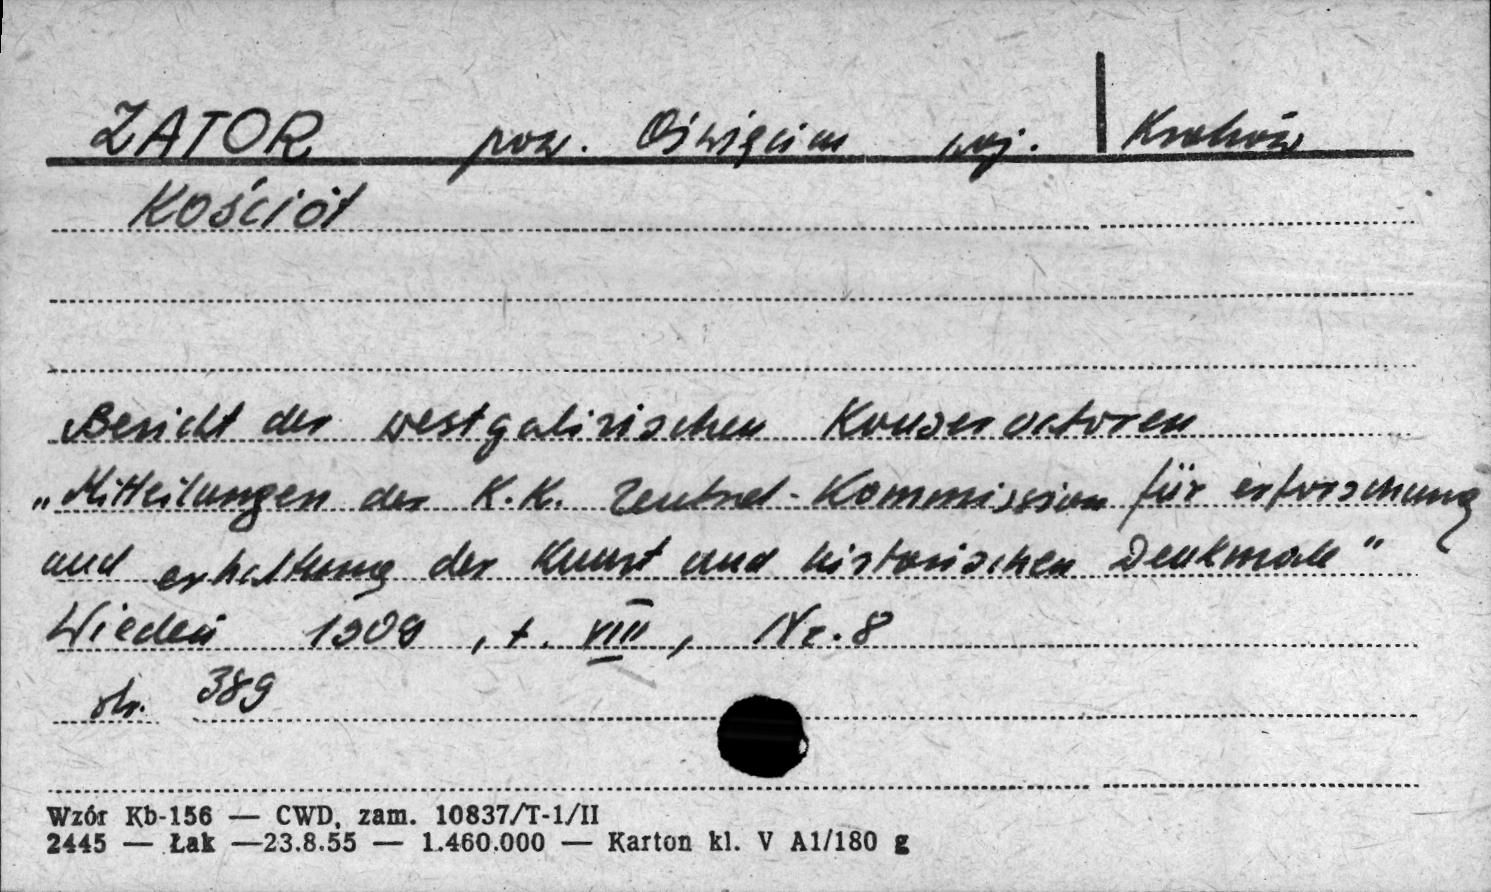 ZATOR pow. Oświęcim woj. Kraków
Kościół
Bericht der westgalizischen Konservatoren
„Mitteilungen der K.K. Zentral-Kommission für erforschung
und erhaltung der Kunst und historischen Denkmale"
Wiedeń 1909, t. VIII, Nr. 8
str. 389
Wzór Kb-156 — CWD, zam. 10837/T-1/II
2445 — Łak —23.8.55 — 1.460.000 — Karton kl. V A1/180 g